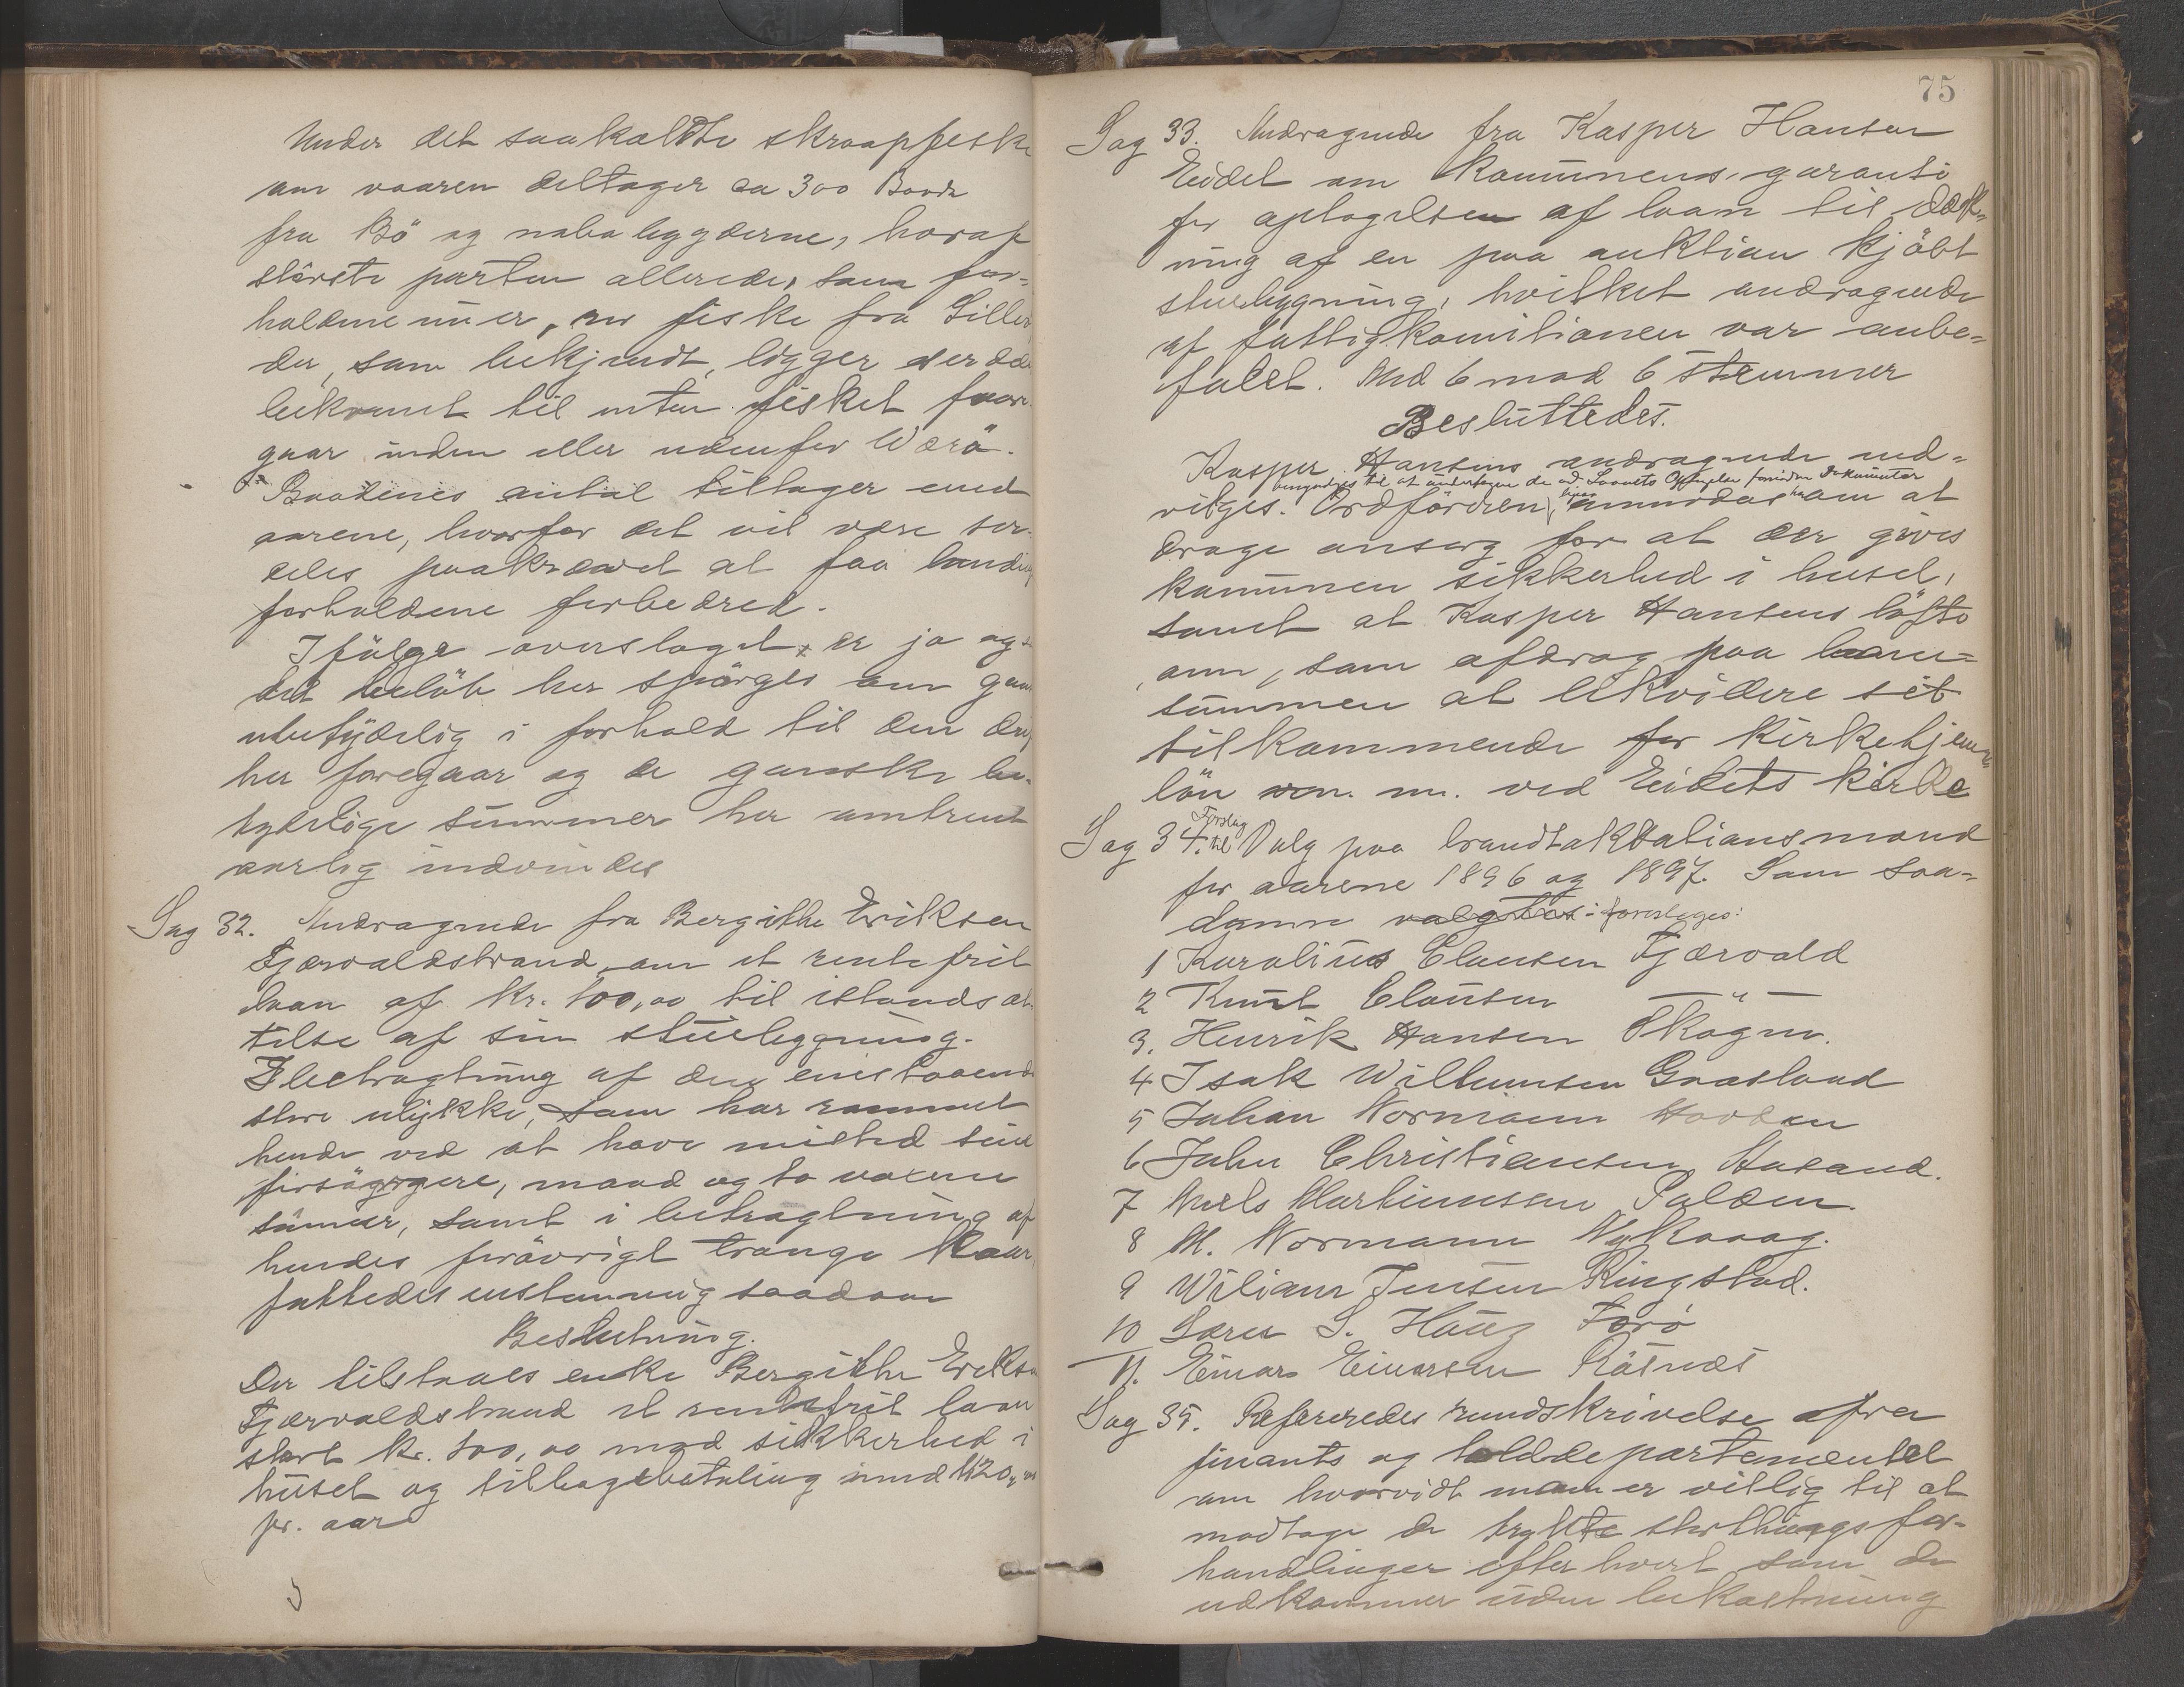 Under det saakaldte skraapfiske
om vaaren deltager ca 300 Baade
fra Bö og nabobygderne, hvoraf
störste parten allerede, som for-
holdene nu er, ror fiske fra
der, som bekjendt, ligger
bekvemt til enten fisket fore-
gaar inden eller udenfor Værö.
Baadenes antal tiltager med
aarene, hvorfor det vil være ser-
deles paakrævet at faa landings
forholdene forbedred.
Ifölge overslaget, er jo og
det belöb her spörges om gan
ubetydelig i forhold til den drift
her foregaar og de ganske be-
tydelige summer her omtrent
aarlig indvindes
Sag 32. Andragende fra Bergithe Eriksen
Fjærvoldstrand om et rentefrit
laan af Kr. 100,00 til istandsæt
telse af sin stuebygning.
I betragtning af den enestaaende
store ulykke, som har rammet
hende ved at have misted sine
forsörgere, mand og to voxne
sönner, samt i betragtning af
hendes forövrigt trange Kaar
fattedes enstemmig saadan
Beslutning.
Der tilstaaes enke Bergithe Eriksen
Fjærvoldstrand et rentefrit laan
stort Kr. 100,00 mod sikkerhed i
huset og tilbagebetaling med Kr 20,00
pr. aar
75
Sag 33. Andragende fra Kasper Hansen
Eidet om Kommunens garanti
for optagelsen af laan til dæk-
ning af en paa auktion kjöbt
stuebygning, hvilket andragende
af fattigkomitionen var anbe-
falet. Med 6 mod 6 stemmer
Besluttedes.
Kasper Hansens andragende ind-
bemyndiges til at undertegne de ved Laanets Optagelse fornødne Dokumenter
vilges. Ordföreren, ligesom anmodes han om at
drage omsorg for at der gives
kommunen sikkerhed i huset,
samt at Kasper Hansens löfte
om, som afdrag paa laane-
summen at likvidere sit
tilkommende for kirketjener
lön m. m. ved Eidets kirke
Sag 34. Forslag til Valg paa brandtakstationsmænd
for aarene 1896 og 1897. Som saa-
danne valgtes: foreslages:
1 Karolius Clausen Fjærvold
2 Knut Clausen — " —
3. Henrik Hansen Skogn.
4 Isak Willumsen Gaasland
5 Johan Normann Hovden
6 John Christiansen Aasand.
7 Niels Martinussen Polden.
8 M. Normann Nykvaag.
9 Wiliam Jensen Ringstad.
10 Sören S. Haug Forö
11. Einar Einarsen Räsnæs
Sag 35. Refereredes rundskrivelse fra
finants og tolddepartementet
om hvorvidt man er villig til at
modtage de trykte storthingsfor-
handlinger efterhvert som de
udkommer uden bekostning